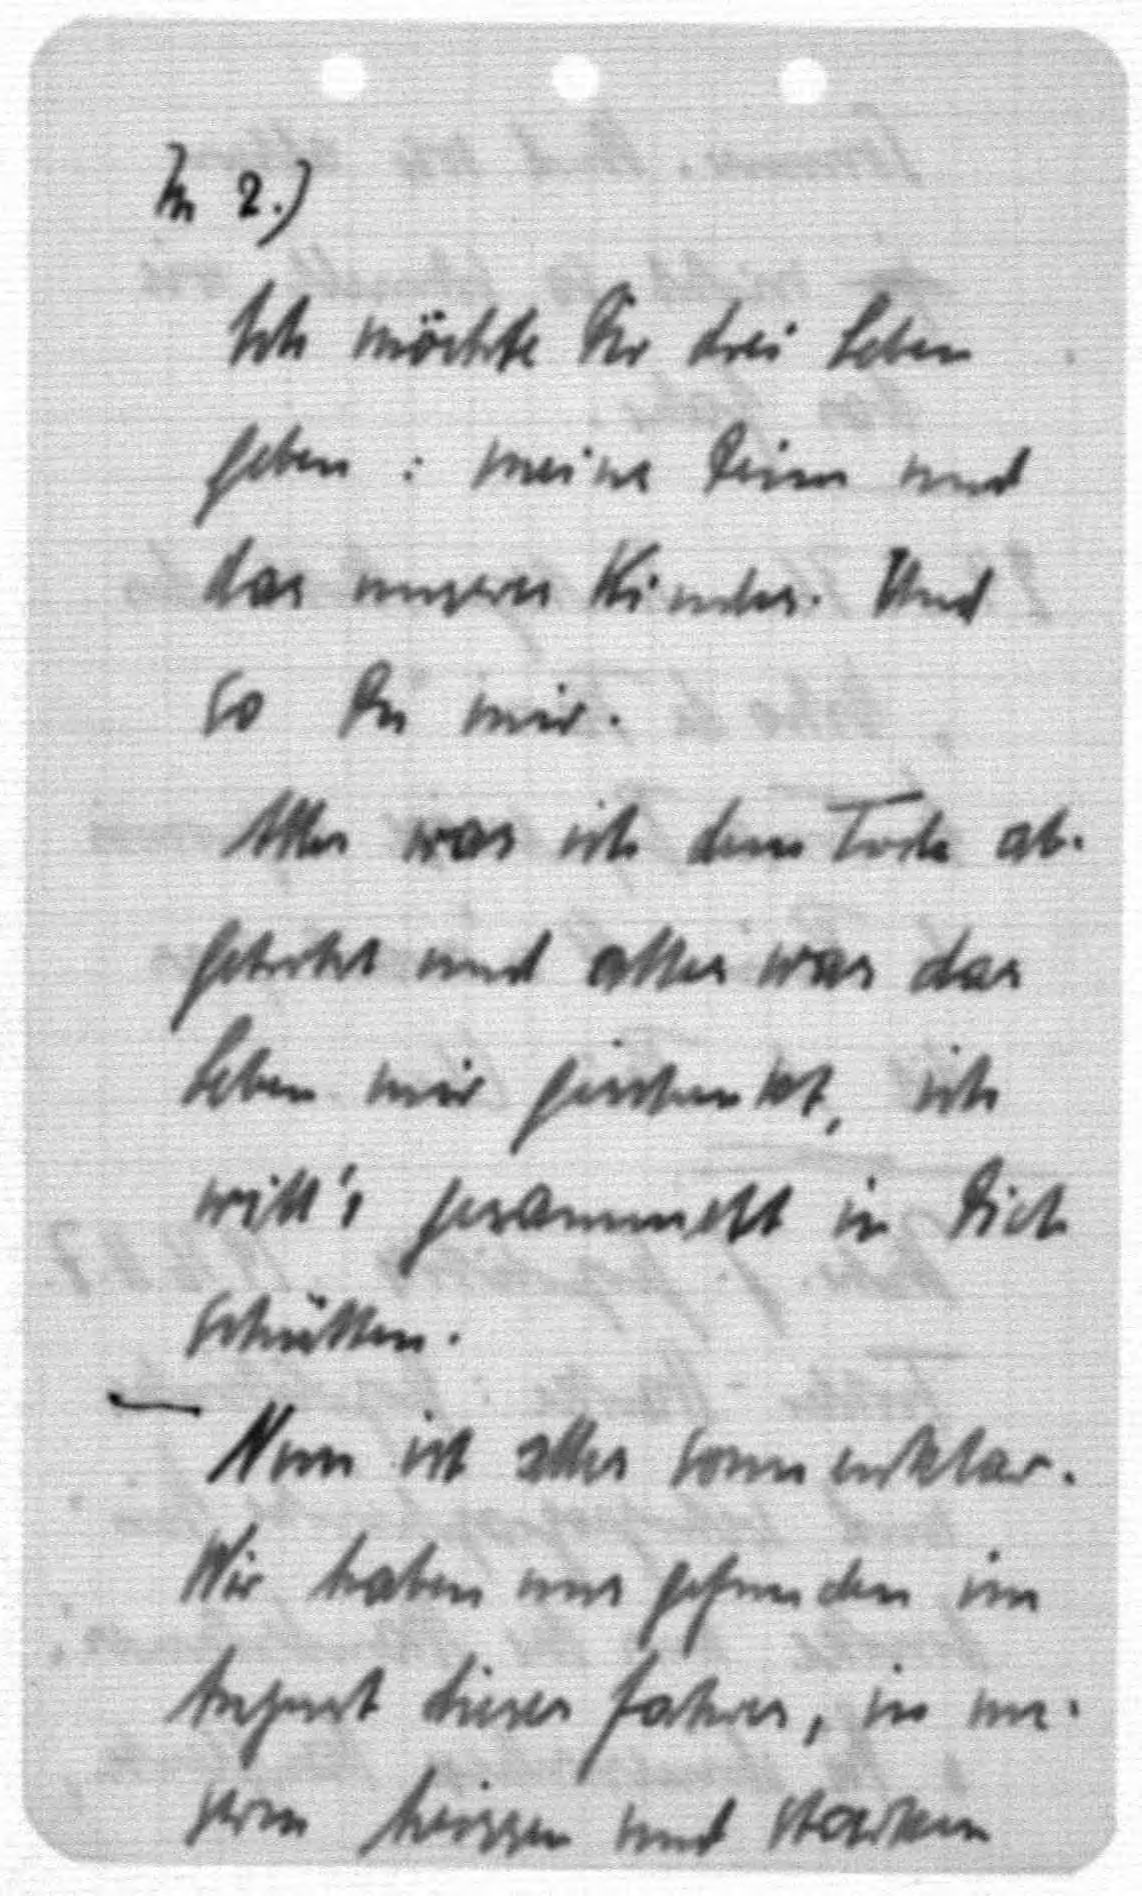 Zu 2.)
Ich möchte Dir drei Leben
geben: meine Deine und
das unseres Kindes. Und
so Du mir.
Alles was ich dem Tode ab-
getrotzt und alles was das
Leben mir geschenkt, ich
will's gesammelt in Dich
schütten.
Nun ist alles sonnenklar.
Wir haben uns gefunden im
August dieses Jahres, in un-
serm heissen und starken